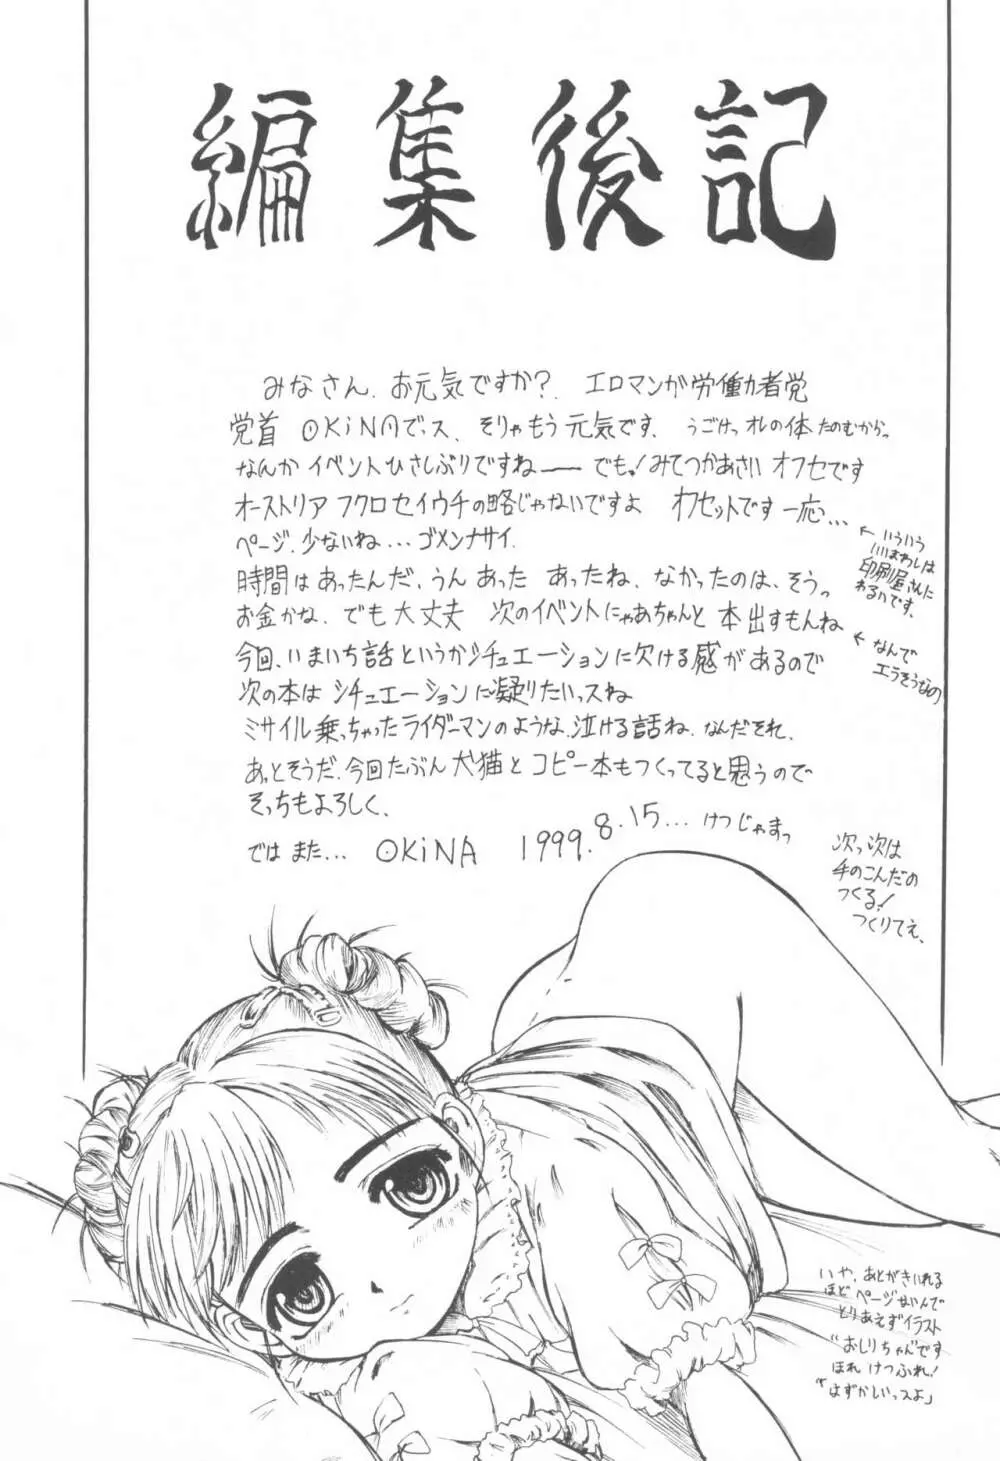 編集後記
みなさん、お元気ですか？ エロマンガ労働者党
党首 OKiNAでっス、そりゃもう元気です、うごけっオレの体たのむからっ
なんかイベントひさしぶりですね── でもっ！みてつかあさい オフセです
オーストリア フクロセイウチの略じゃないですよ オフセットです一応…
ページ、少ないね…ゴメンナサイ、
←いういう
いいまわしは
印刷屋さんに
わるいです、
時間はあったんだ、うんあった あったね、なかったのは、そうっ
お金かな、でも大丈夫 次のイベントにゃあちゃんと 本出すもんね
←なんで
エラそうなの
今回、いまいち話というかシチュエーションに欠ける感があるので
次の本は シチュエーションに凝りたいっスね
ミサイル乗っちゃったライダーマンのような、泣ける話ね、なんだそれ、
あっとそうだ、今回たぶん犬猫とコピー本もつくってると思うので
そっちもよろしく、
では また… OKiNA 1999.8.15…けつじゃまっ
次っ次は
手のこんだの
つくる！
つくりてえ、
いや、あとがきいれる
ほどページないんで
とりあえずイラスト
"おしりちゃん"です
ほれ けつふれ！
「はずかしいっスよ」